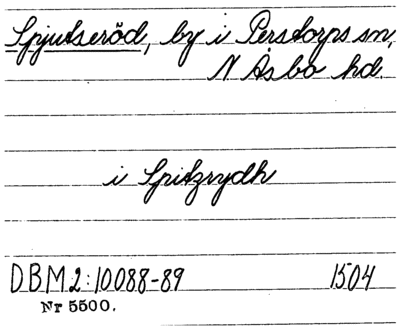 Spjutseröd, by i Perstorps sn,
N Åsbo hd.
i Spitzrydh
DBM 2:10088-89 1504
Nr 5500.